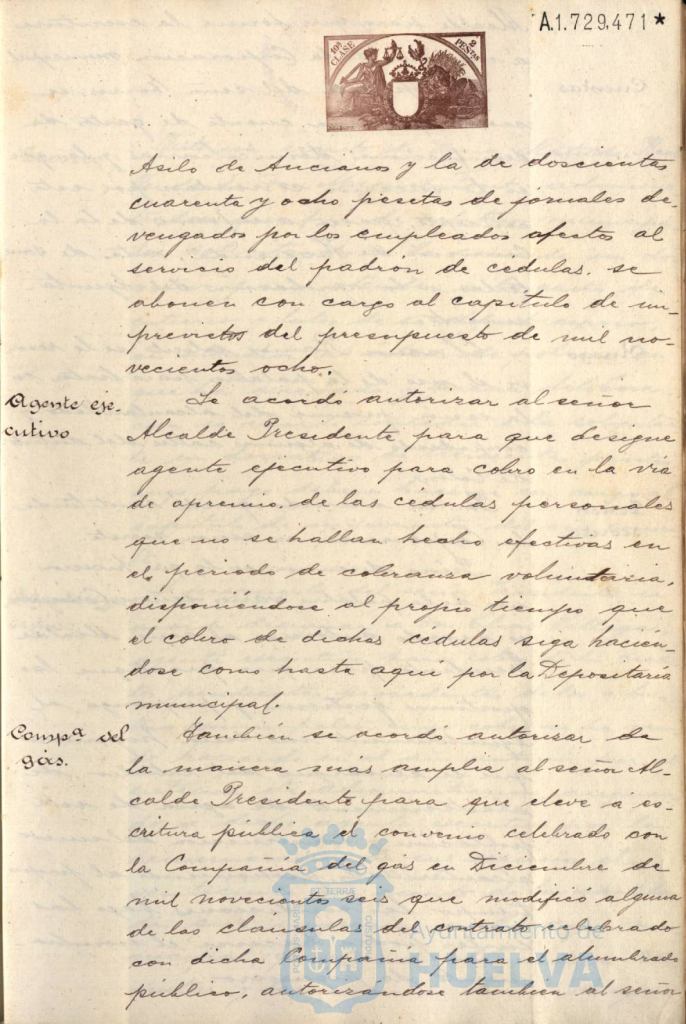 A.1.729,471*
10ª CLASE
2 PESETAS
Asilo de Ancianos y la de doscientas
cuarenta y ocho pesetas de jornales de-
vengados por los empleados afectos al
servicio del padrón de cédulas, se
abonen con cargo al capítulo de im-
previstos del presupuesto de mil no-
vecientos ocho.
Agente eje-
cutivo
Se acordó autorizar al señor
Alcalde Presidente para que designe
agente ejecutivo para cobro en la via
de apremio, de las cédulas personales
que no se hallan hecho efectivas en
el periodo de cobranza voluntaria,
disponiéndose al propio tiempo que
el cobro de dichas cédulas siga hacién-
dose como hasta aquí por la Depositaría
municipal.
Compª del
gás.
También se acordó autorizar de
la manera más amplia al señor Al-
calde Presidente para que eleve á es-
critura pública el convenio celebrado con
la Compañía del gás en Diciembre de
mil novecientos seis que modificó alguna
de las cláusulas del contrato celebrado
con dicha Compañía para el alumbrado
público, autorizándose tambien al señor
Ayuntamiento de
HUELVA